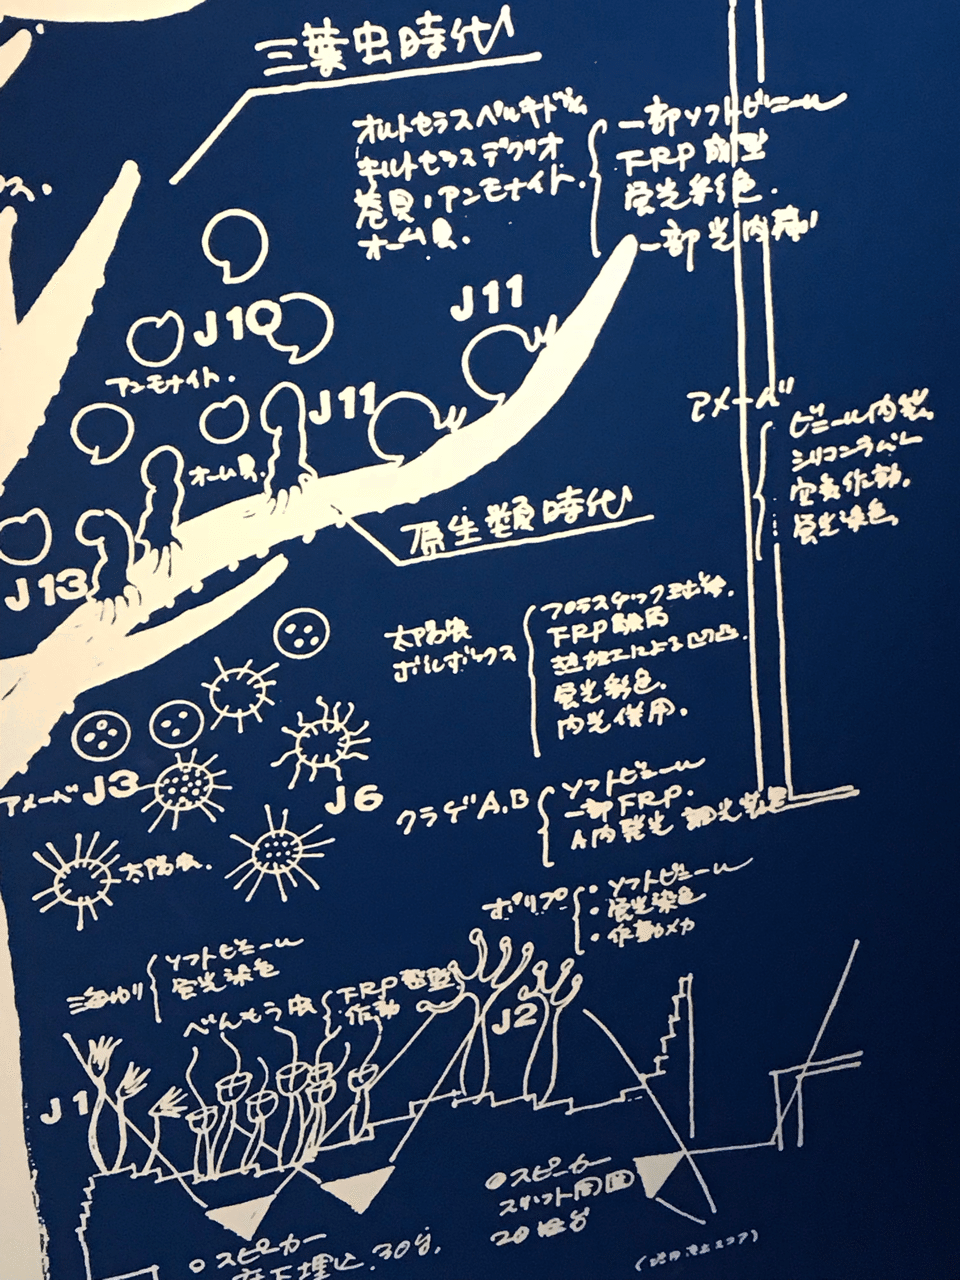 三葉虫時代
オルトセラスペルキドゥム
キルトセラスデクリオ
巻貝、アンモナイト、
オーム貝。
一部ソフトビニール
FRP成型
蛍光彩色。
一部光内蔵
J10
J11
アンモナイト。
J11
オーム貝。
J13
アメーバ
ビニール内袋。
シリコンラバー
空気作動。
蛍光染色。
原生類時代
太陽虫
ボルボックス
プラスチック球体。
FRP
熱加工による凹凸。
蛍光彩色。
内光併用。
アメーバ J3
J6
太陽虫。
クラゲA.B
ソフトビニール
一部FRP.
A内発光 調光装置
ポリプ
・ソフトビニール
・蛍光染色
・作動メカ
海ゆり
ソフトビニール
蛍光染色
べんもう虫
FRP整型
作動
J2
J1
スピーカー
スカート周囲
20
スピーカー
床下埋込.30台.